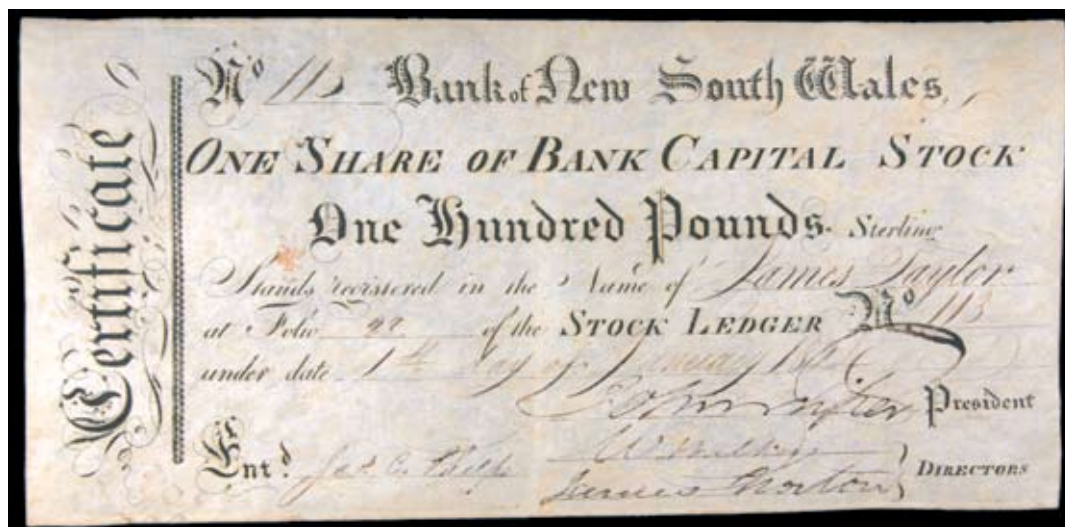 Certificate
No 113 Bank of New South Wales,
ONE SHARE OF BANK CAPITAL STOCK
One Hundred Pounds. Sterling
Stands registered in the Name of James Taylor
at Folio of the STOCK LEDGER No 113
under date 1st day of January
President
Entd.
James Norton DIRECTORS